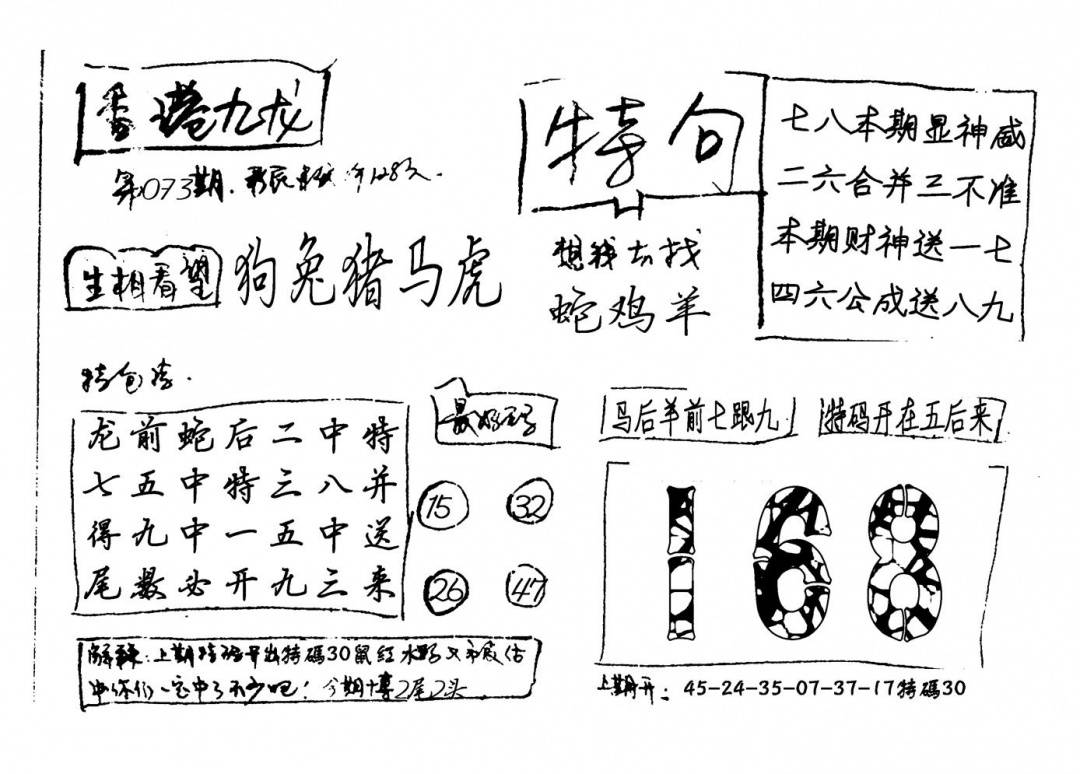 香港九龙
第073期.
生相看望 狗兔猪马虎
特句
想钱去找
蛇鸡羊
七八本期显神威
二六合并三不准
本期财神送一七
四六公成送八九
特包诗.
龙前蛇后二中特
七五中特三八并
得九中一五中送
尾数必开九三来
最好码
15 32
26 47
马后羊前七跟九
特码开在五后来
168
解释：上期特码开出特碼30鼠红水
中你们一定中了不少吧！今期博2尾2头.
上期开：45-24-35-07-37-17特碼30